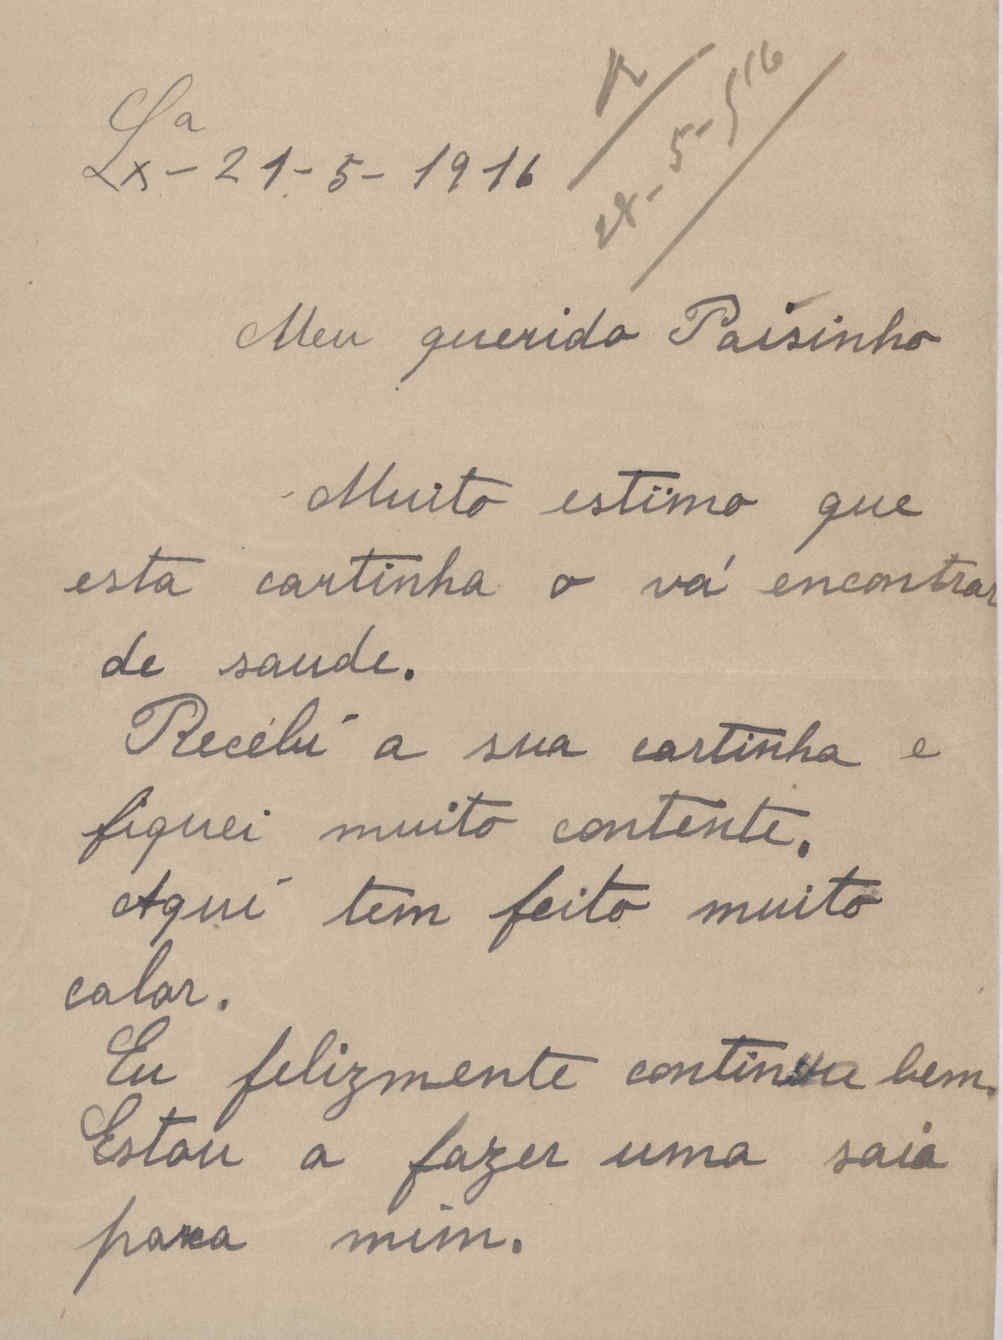 Lxª - 21-5-1916
R
28-5-916
Meu querido Paisinho
Muito estimo que
esta cartinha o vá encontrar
de saude.
Recebi a sua cartinha e
fiquei muito contente.
Aqui tem feito muito
calor.
Eu felizmente continua bem.
Estou a fazer uma saia
para mim.